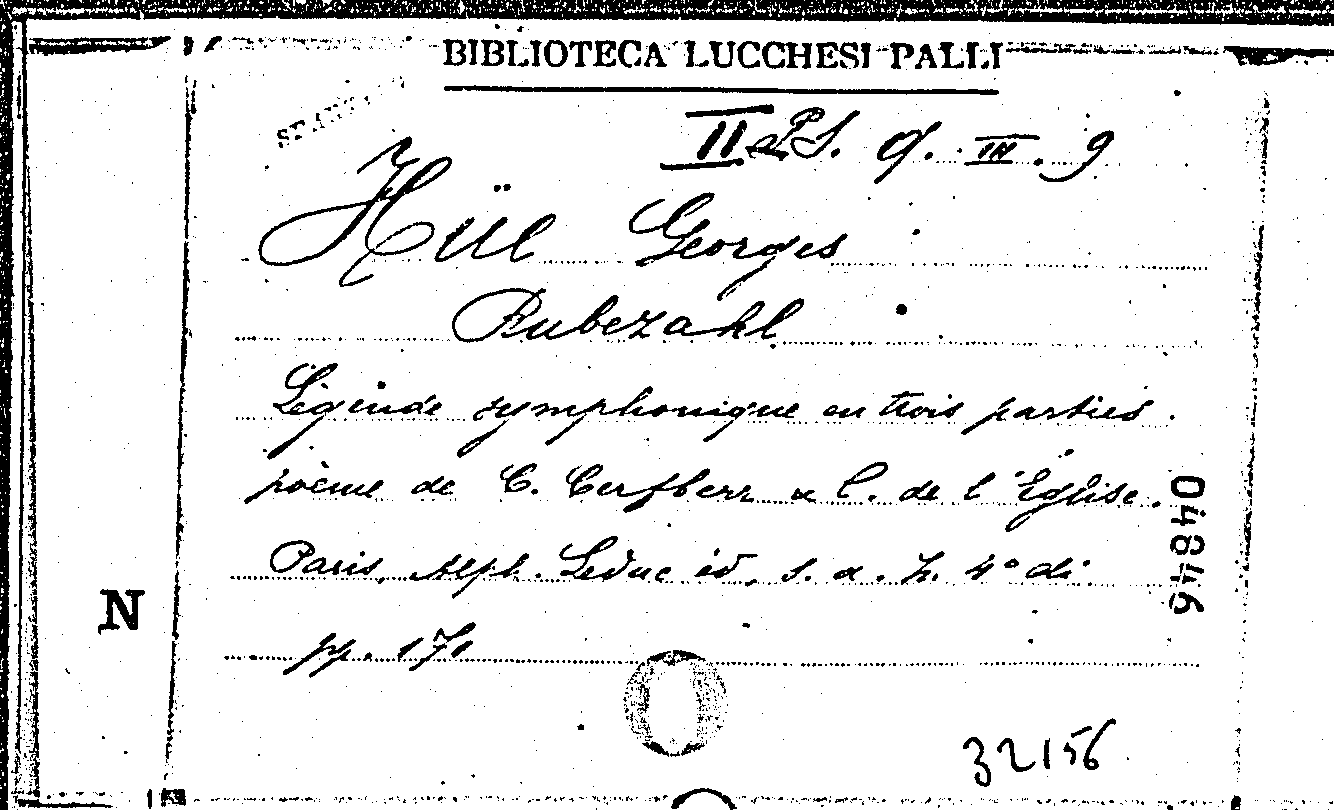 BIBLIOTECA LUCCHESI PALLI
II P.S. A. III. 9
Hüe Georges
Rubezahl
Légende symphonique en trois parties.
poème de C. Cerfberr & C. de l'Eglise.
Paris, Alph. Leduc éd, s. a. h. 4° di
pp. 171
04846
N
32156